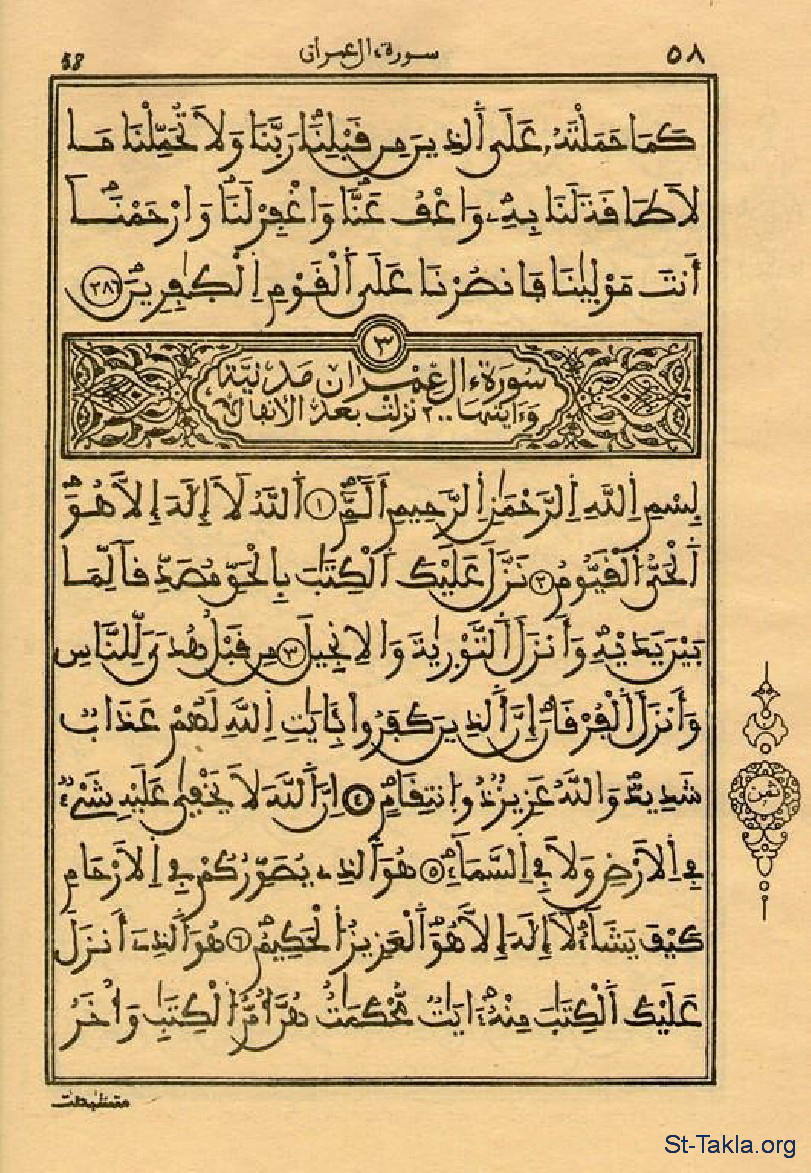 58 سورة ءال عمران ٥٨
كَمَا حَمَلْتَهُۥ عَلَى أَلذِينَ مِن قَبْلِنَاۖ رَبَّنَا وَلَا تُحَمِّلْنَا مَا
لَا طَاقَةَ لَنَا بِهِۦۖ وَاعْفُ عَنَّاۖ وَاغْفِرْ لَنَاۖ وَارْحَمْنَاۖ
أَنتَ مَوْلَىٰنَا فَانصُرْنَا عَلَى أَلْقَوْمِ اِلْكَٰفِرِينَۖ ٢٨٦
٣
سُورَةُ ءَالِ عِمْرَانَ مَدَنِيَّة
وَءَايَتُهَا ٢٠٠ نزلت بعد الانفال
بِسْمِ اِللَّهِ اِلرَّحْمَٰنِ اِلرَّحِيمِ أَلَٓمِّٓۖ ١ أَللَّهُ لَآ إِلَٰهَ إِلَّا هُوَۖ
أَلْحَيُّ اُلْقَيُّومُۖ ٢ نَزَّلَ عَلَيْكَ أَلْكِتَٰبَ بِالْحَقِّ مُصَدِّقاً لِّمَا
بَيْنَ يَدَيْهِۖ وَأَنزَلَ أَلتَّوْرَىٰةَ وَالْإِنجِيلَ ٣ مِن قَبْلُ هُدىً لِّلنَّاسِ
وَأَنزَلَ أَلْفُرْقَانَۖ إِنَّ أَلذِينَ كَفَرُواْ بِـَٔايَٰتِ اِللَّهِ لَهُمْ عَذَابٌ
شَدِيدٌۖ وَاللَّهُ عَزِيزٌ ذُو اُنتِقَامٍۖ ٤ إِنَّ أَللَّهَ لَا يَخْفَىٰ عَلَيْهِ شَيْءٌ
فِے اِلْأَرْضِ وَلَا فِے اِلسَّمَآءِۖ ٥ هُوَ أَلذِے يُصَوِّرُكُمْ فِے اِلْأَرْحَامِ
كَيْفَ يَشَآءُۖ لَآ إِلَٰهَ إِلَّا هُوَۖ أَلْعَزِيزُ اُلْحَكِيمُۖ ٦ هُوَ أَلذِےٓ أَنزَلَ
عَلَيْكَ أَلْكِتَٰبَ مِنْهُۖ ءَايَٰتٌ مُّحْكَمَٰتٌ هُنَّ أُمُّ اُلْكِتَٰبِ وَأُخَرُ
ثمن
متشبهت
St-Takla.org